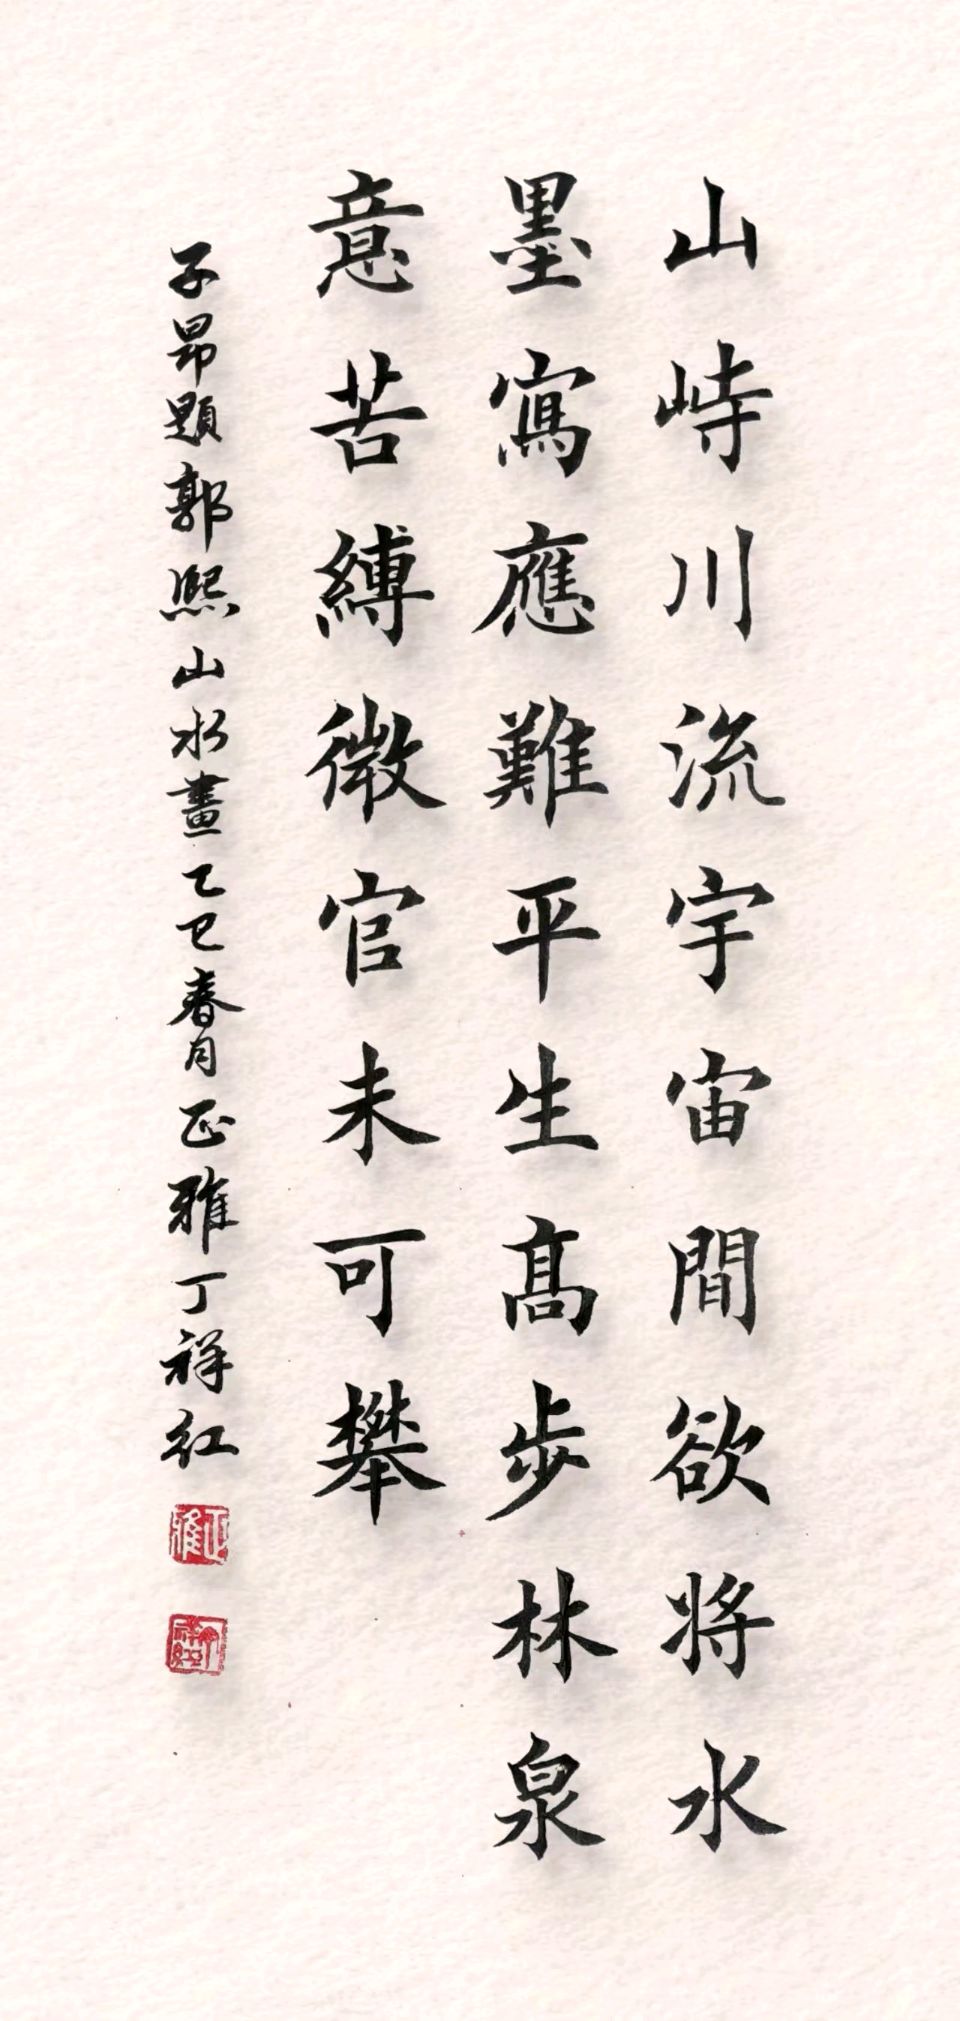 山峙川流宇宙間欲將水
墨寫應難平生高步林泉
意苦縛微官未可攀
子昂題郭熙山水畫乙巳春月正雅丁祥紅
正雅